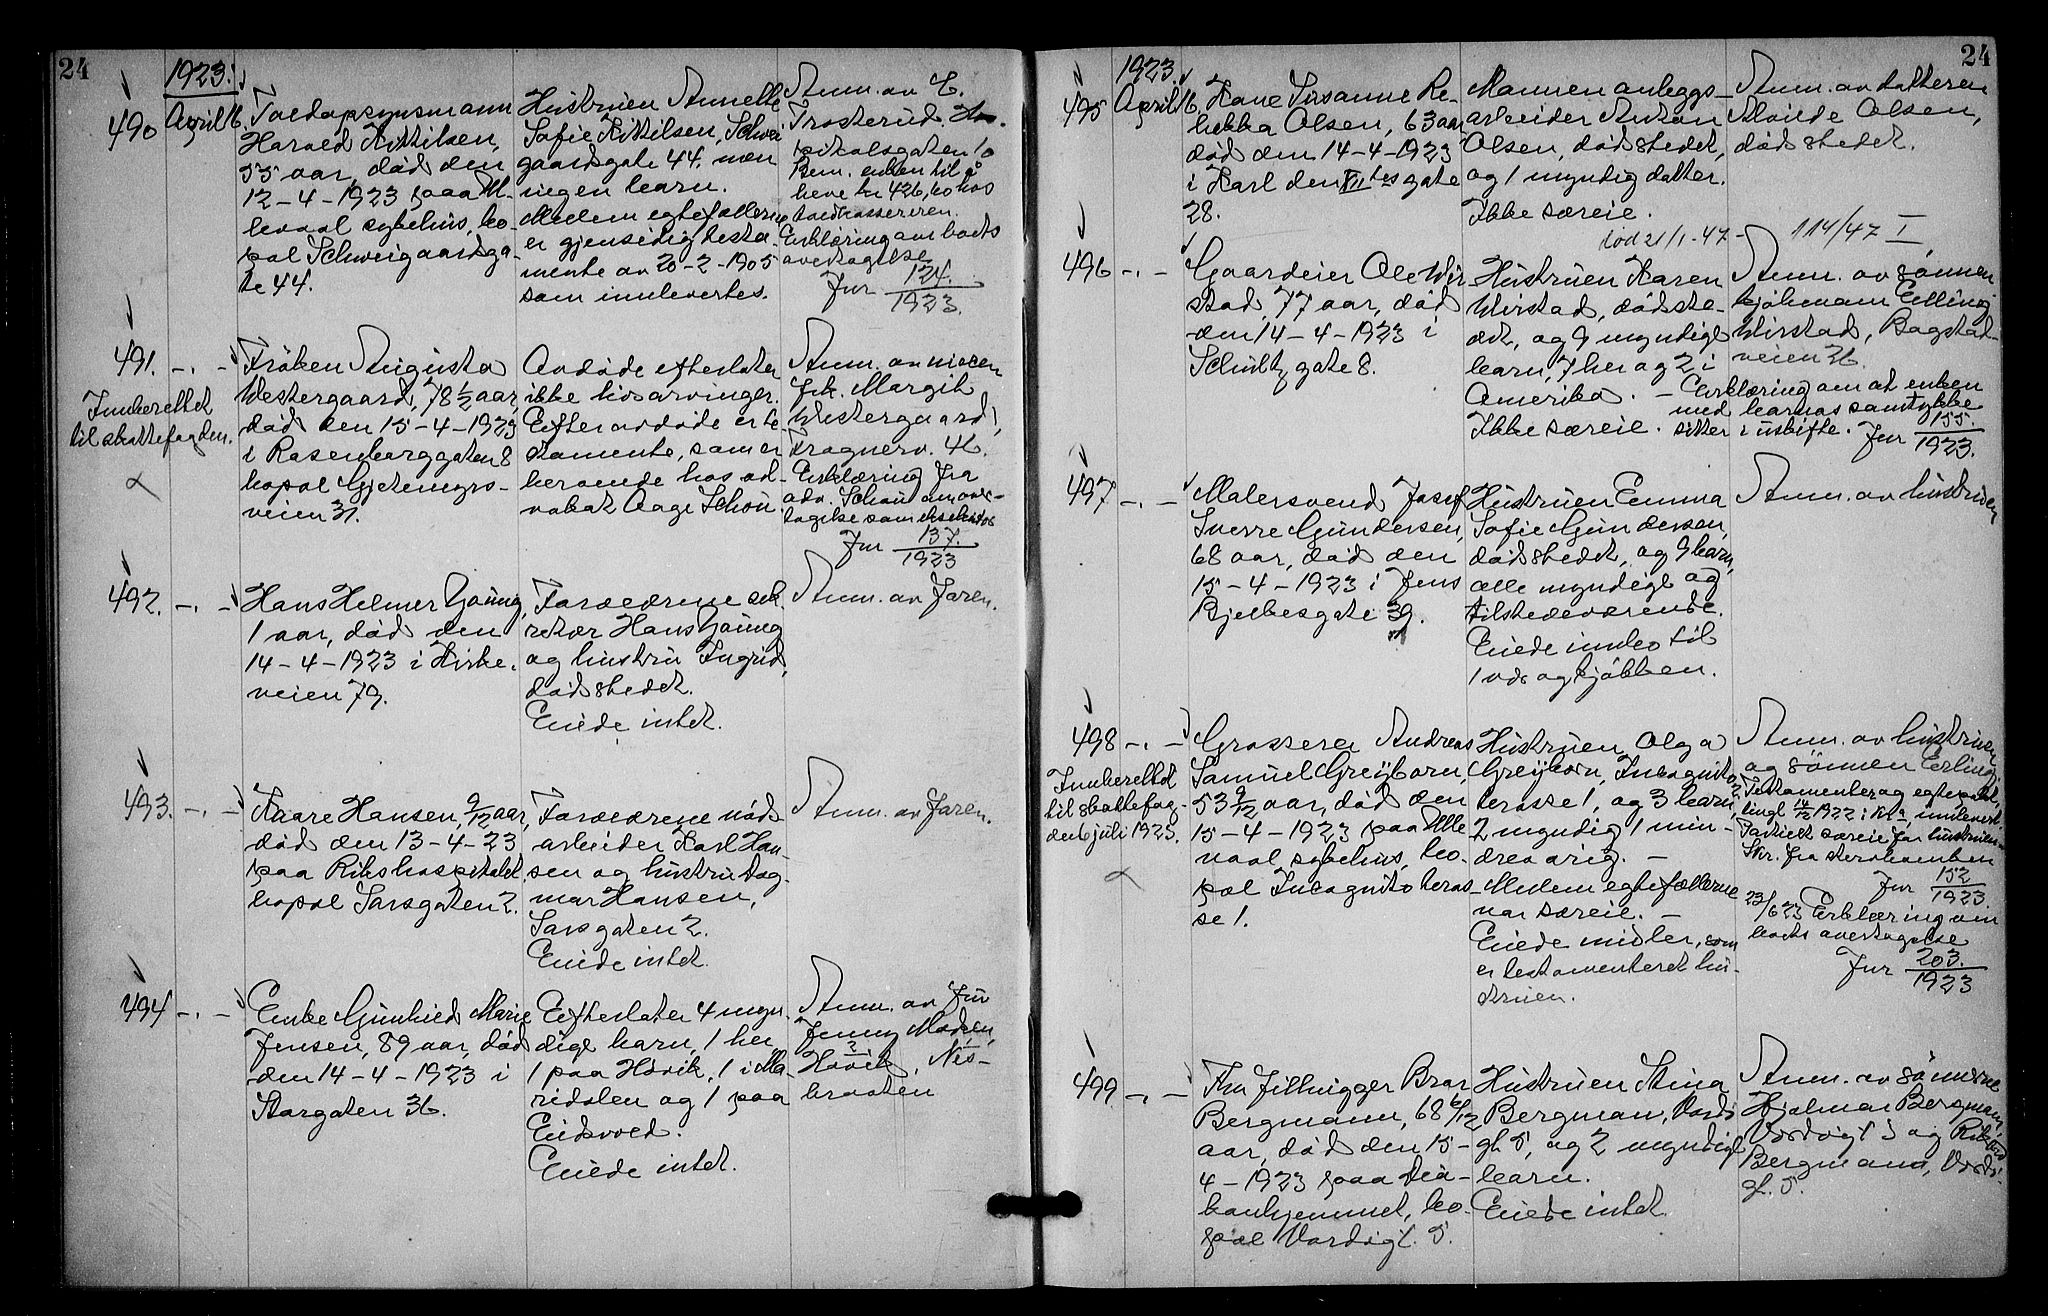 24
1923.
490
April 16.
Toldopsynsmann
Harald Kittilsen,
55 aar, død den
12-4-1923 paa Ul-
levaal sykehus, bo-
pæl Schweigaardsga-
te 44.
Hustruen Annette
Sofie Kittilsen, Schwei
gaardsgate 44, men
ingen barn.
Mellem egtefællerne
er gjensidig testa-
mente av 20-2-1905
som innlevertes.
Anm. av E.
Trosterud. Hos-
pitalsgaten 10
Bem. enken til å
heve kr 426,60 hos
toldkassereren.
Erklæring om boets
overtagelse
Jnr 124.
1923.
491. -"-
Innberettet
til skattefogden.
Frøken Augusta
Westergaard, 78 1/2 aar,
død den 15-4-1923
i Rosenborggaten 8
bopæl Gjetemyrs-
veien 31.
Avdøde efterlater
ikke livsarvinger.
Efter avdøde er te
stamente, som er
beroende hos ad-
vokat Aage Schou.
Anm. av niecen
frk. Margit
Westergaard,
Frognerv. 46.
Erklæring fra
adv. Schou om over-
tagelse som eksekutor
Jnr 137.
1923
492. -"-
Hans Helmer Gaung,
1 aar, død den
14-4-1923 i Kirke-
veien 79.
Forældrene sek
retær Hans Gaung
og hustru Ingrid,
dødsstedet.
Eiede intet.
Anm. av faren.
493. -"-
Kaare Hansen, 9/12 aar,
død den 13-4-23
paa Rikshospitalet,
bopæl Sarsgaten 2.
Forældrene nøds-
arbeider Karl Han-
sen og hustru Dag-
mar Hansen,
Sarsgaten 2.
Eiede intet.
Anm. av faren.
494 -"-
Enke Gunhild Marie
Jensen, 89 aar, død
den 14-4-1923 i
Storgaten 36.
Efterlater 4 myn-
dige barn, 1 her,
1 paa Høvik, 1 i Ma-
ridalen og 1 paa
Eidsvold.
Eiede intet.
Anm. av fru
Jenny Madsen,
Høvik, Nes-
braaten
24
1923.
495 April 16.
Hane Susanne Re-
bekka Olsen, 63 aar
død den 14-4-1923
i Karl den XII tes gate
28.
Mannen anleggs-
arbeider Anton
Olsen, dødsstedet,
og 1 myndig datter.
Ikke særeie.
Anm. av datteren
Alvilde Olsen,
dødsstedet.
død 21/1-47- 114/47 I
496 -"-
Gaardeier Ole Wir
stad, 77 aar, død
den 14-4-1923 i
Schultz gate 8.
Hustruen Karen
Wirstad, dødste-
det, og 9 myndige
barn, 7 her og 2 i
Amerika.
Ikke særeie.
Anm. av sønnen
kjøbmann Elling
Wirstad, Bogstad-
veien 36.
- Erklæring om at enken
med barnas samtykke
sitter i uskifte. Jnr 155.
1923.
497 -"-
Malersvend Josef
Sverre Gundersen,
68 aar, død den
15-4-1923 i Jens
Bjelkesgate 39.
Hustruen Emma
Sofie Gundersen,
dødsstedet, og 9 barn,
alle myndige og
tilstedeværende.
Eiede innbo til
1 vær og kjøkken.
Anm. av hustruen
498 -"-
Innberettet
til skattefog-
den 6 juli 1923.
Grosserer Andreas
Samuel Greyborn,
53 9/12 aar, død den
15-4-1923 paa Ulle
vaal sykehus, bo-
pæl Incognito teras-
se 1.
Hustruen Olga
Greyborn, Incognito
terasse 1, og 3 barn,
2 myndig 1 min-
dreaarig. -
Mellem egtefællerne
var særeie. -
Eiede midler, som
er testamenteret hu-
struen.
Anm. av hustruen
og sønnen Erling.
Testamenter og egtepakt,
tingl 14/2 1922 i Kr.a, innlevert.
Partiell særeie for hustruen.
Skr. fra skrokammen
Jnr 152
1923.
23/6 23 Erklæring om
boets overtagelse
Jnr 203.
1923
499 -"-
Fru Filhuigger Bror
Bergmann, 68 6/12
aar, død den 15-
4-1923 paa Dia-
konhjemmet, bo-
pæl Vardøgt. 5.
Hustruen Stina
Bergman, Vardø-
gt 5, og 2 myndige
barn.
Eiede intet
Anm. av sønnerne
Hjalmar Bergman,
Vardøgt 5 og Rikard
Bergmann, Vardø-
gt. 5.